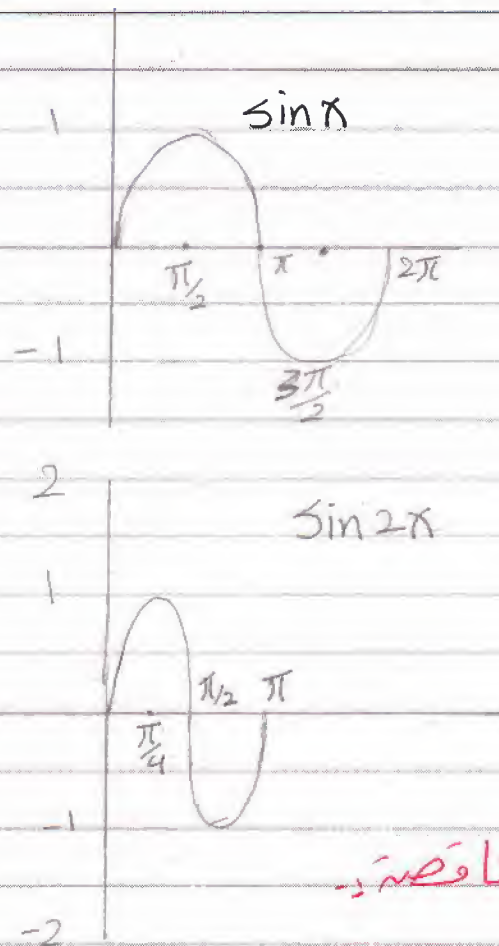 1
sin x
π/2
π
2π
-1
3π/2
2
sin 2x
1
π/2 π
π/4
-1
-2